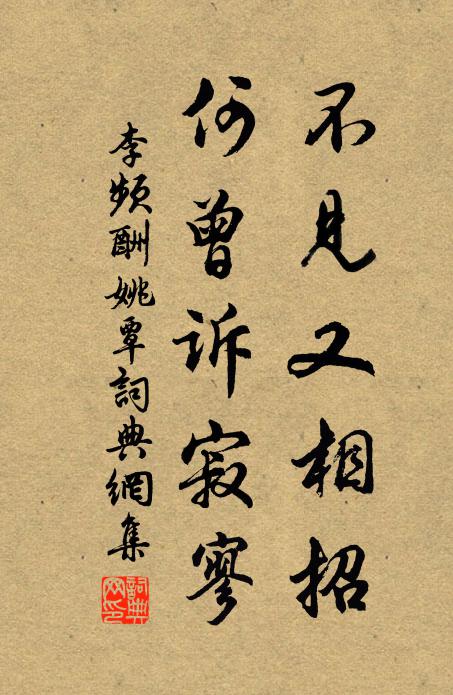 不見又相招
何曾訴寂寥
李頻酬姚覃詞典網集
詞典
网印